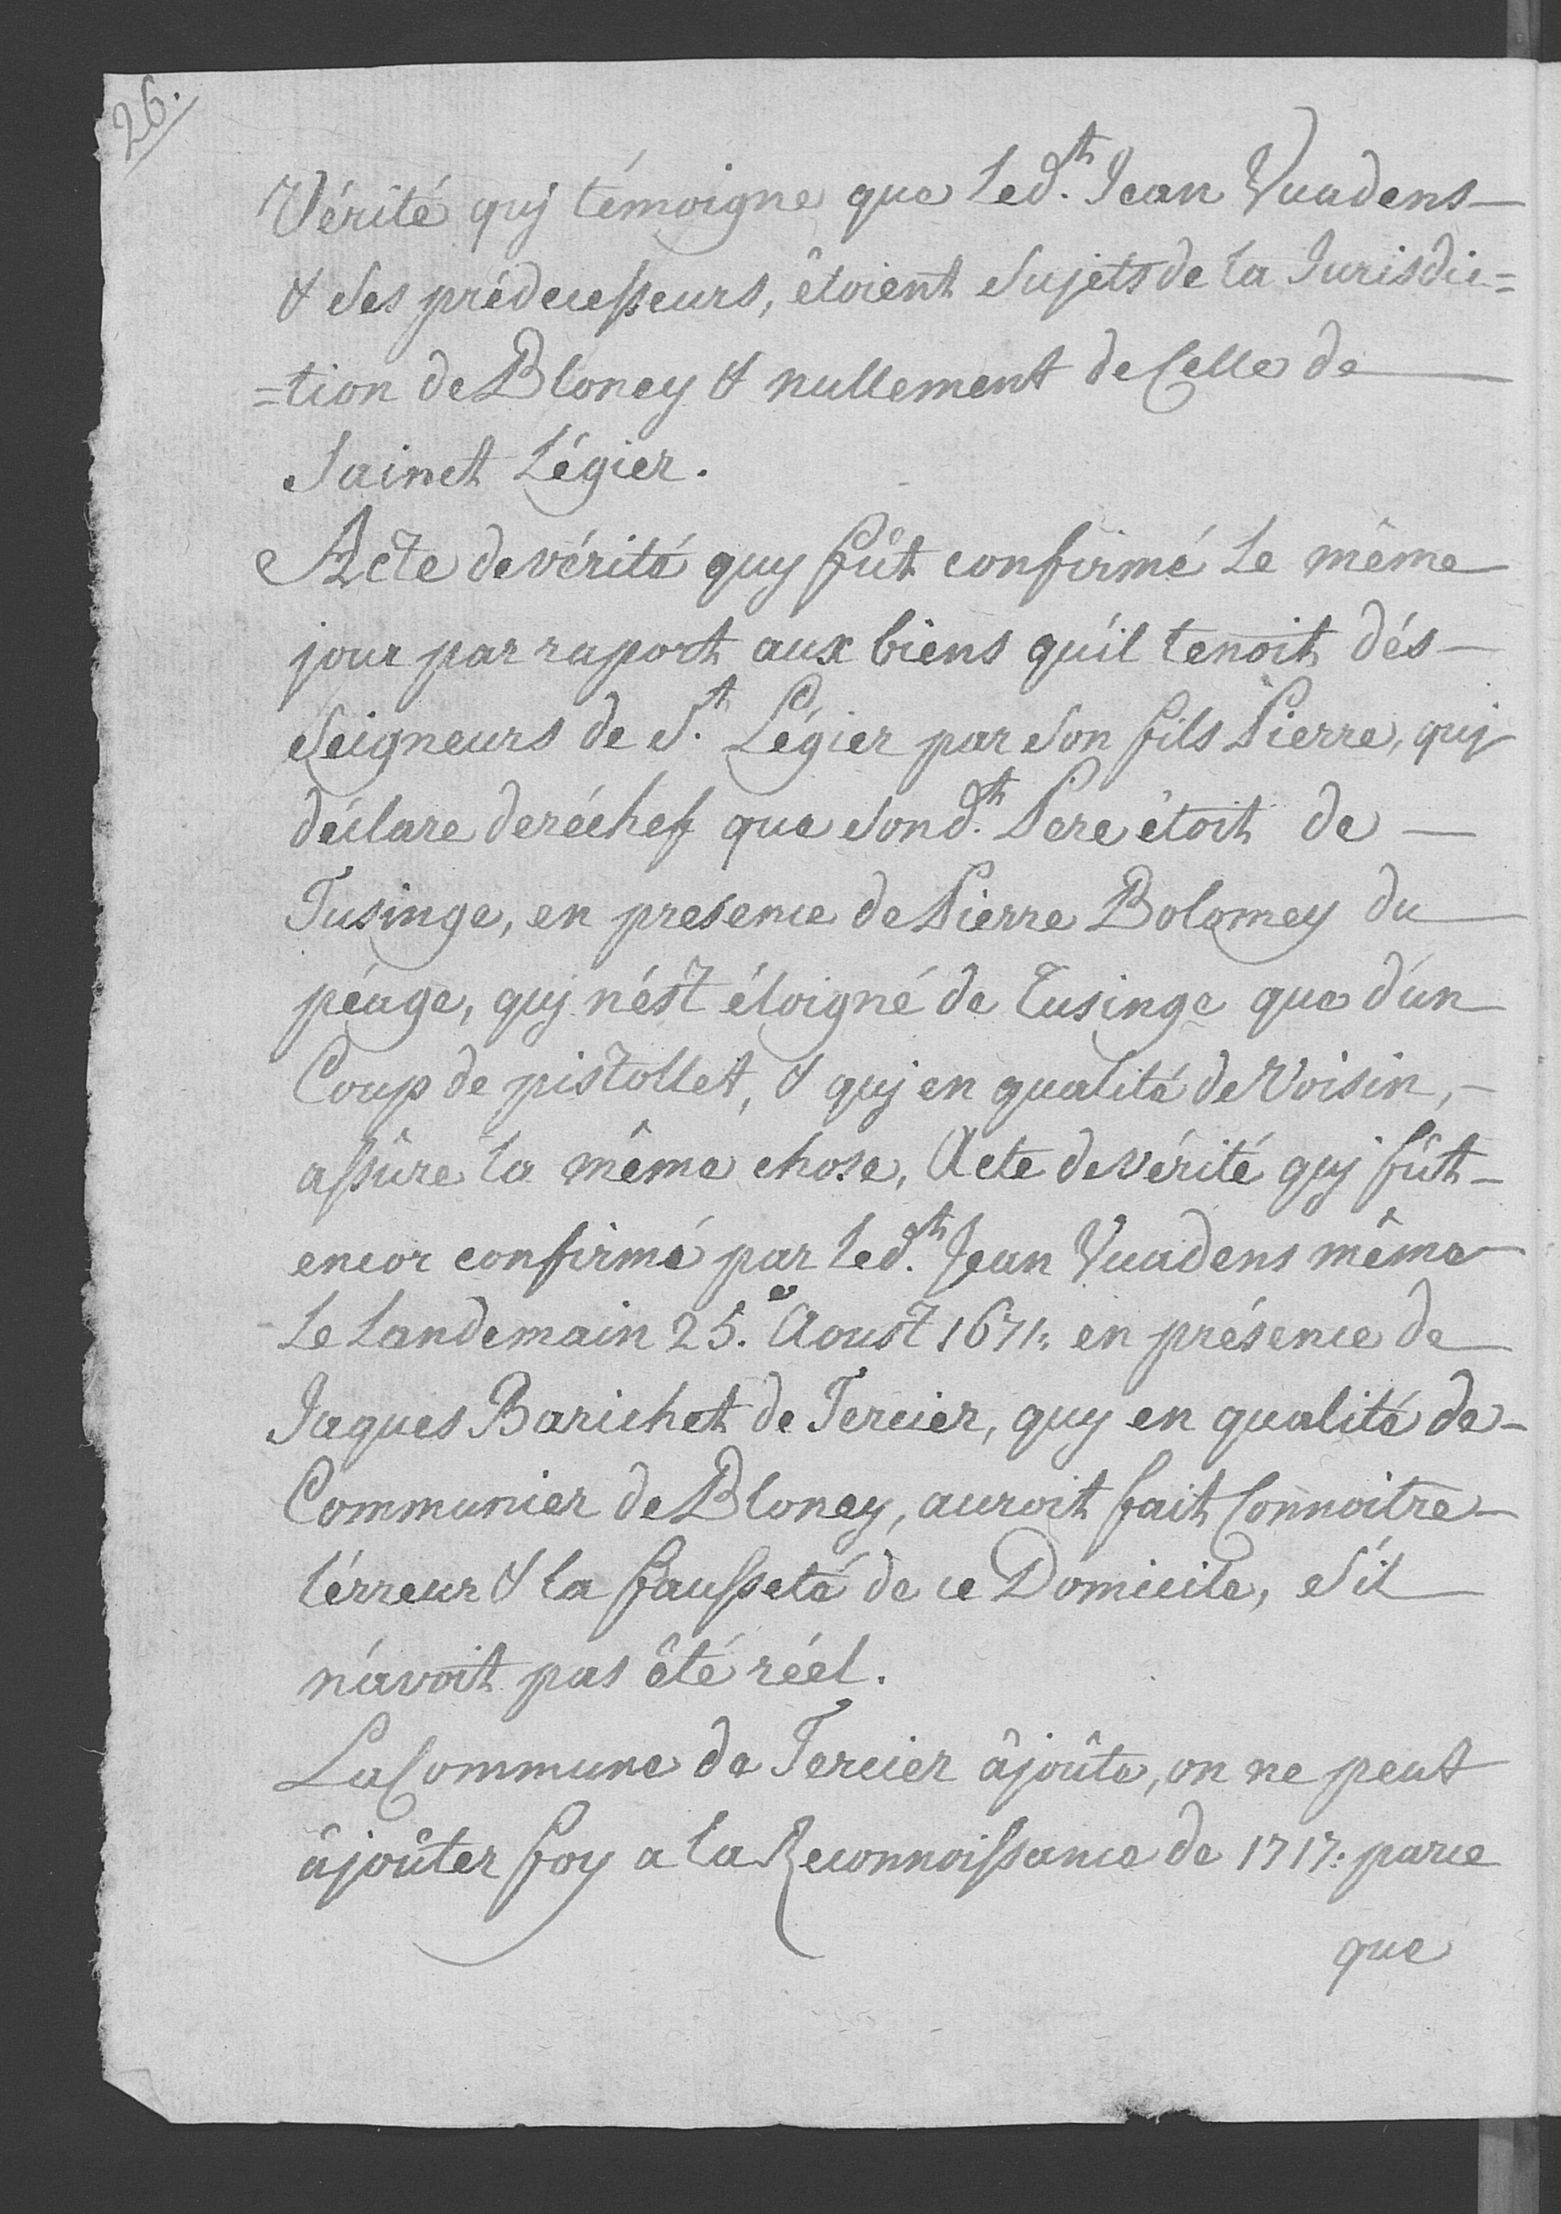 26.
Vérité quj témoigne que led.t Jean Vuadens
& ses prédecesseurs, êtoient sujets de la Jurisdic=
=tion de Bloney & nullement de Celle de
sainct Légier.
Acte de vérité quy fût confirmé le même
jour par raport aux biens qu'il tenoit dés
seigneurs de S.t Légier par son fils Pierre, quj
déclare deréchef que sond.t Pere êtoit de
Tusinge, en presence de Pierre Bolomey du
péage, quj n'ést éloigné de Tusinge que d'un
Coup de pistollet, & quj en qualité de Voisin,
assûre la même chose, Acte de vérité quj fût
encor confirmé par led.t Jean Vuadens même
le Landemain 25.e Aoust 1671: en présence de
Jaques Barichet de Tercier, quy en qualité de
Communier de Bloney, auroit fait Connoitre
l'érreur & la fausseté de ce Domicile, s'il
n'avoit pas été réél.
La Commune de Tercier âjoûte, on ne peut
âjoûter foy a la Reconnoissance de 1717: parce
que